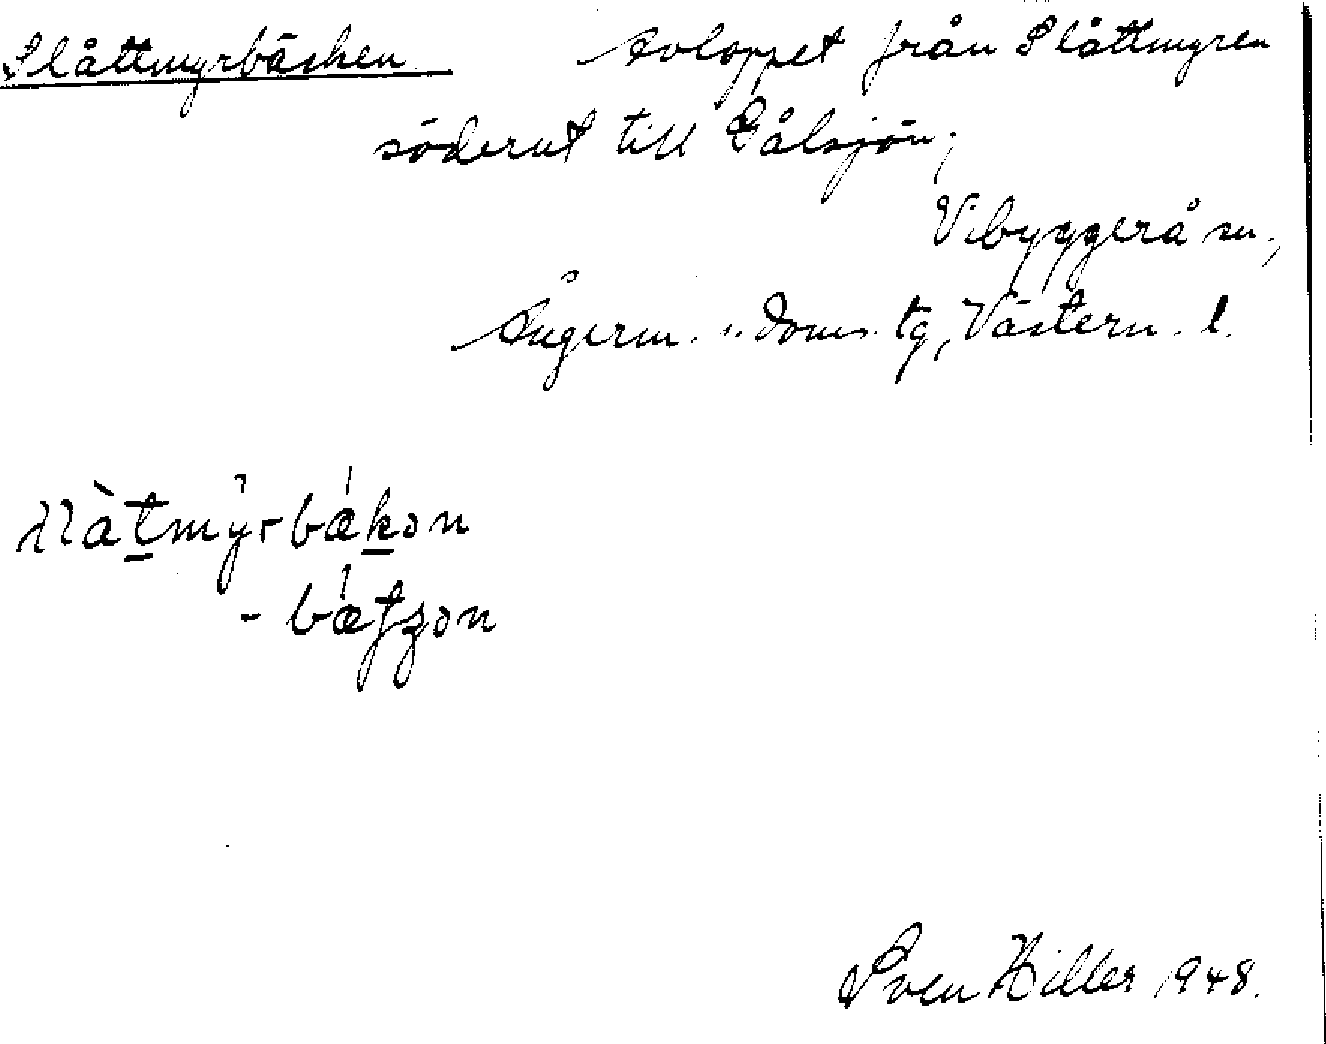 Slåttmyrbäcken Avloppet från Slåttmyren
söderut till Gålsjön;
Vibyggerå sn,
Ångerm. n. doms. tg, Västern. l.
-bæ
Sven Hiller 1948.